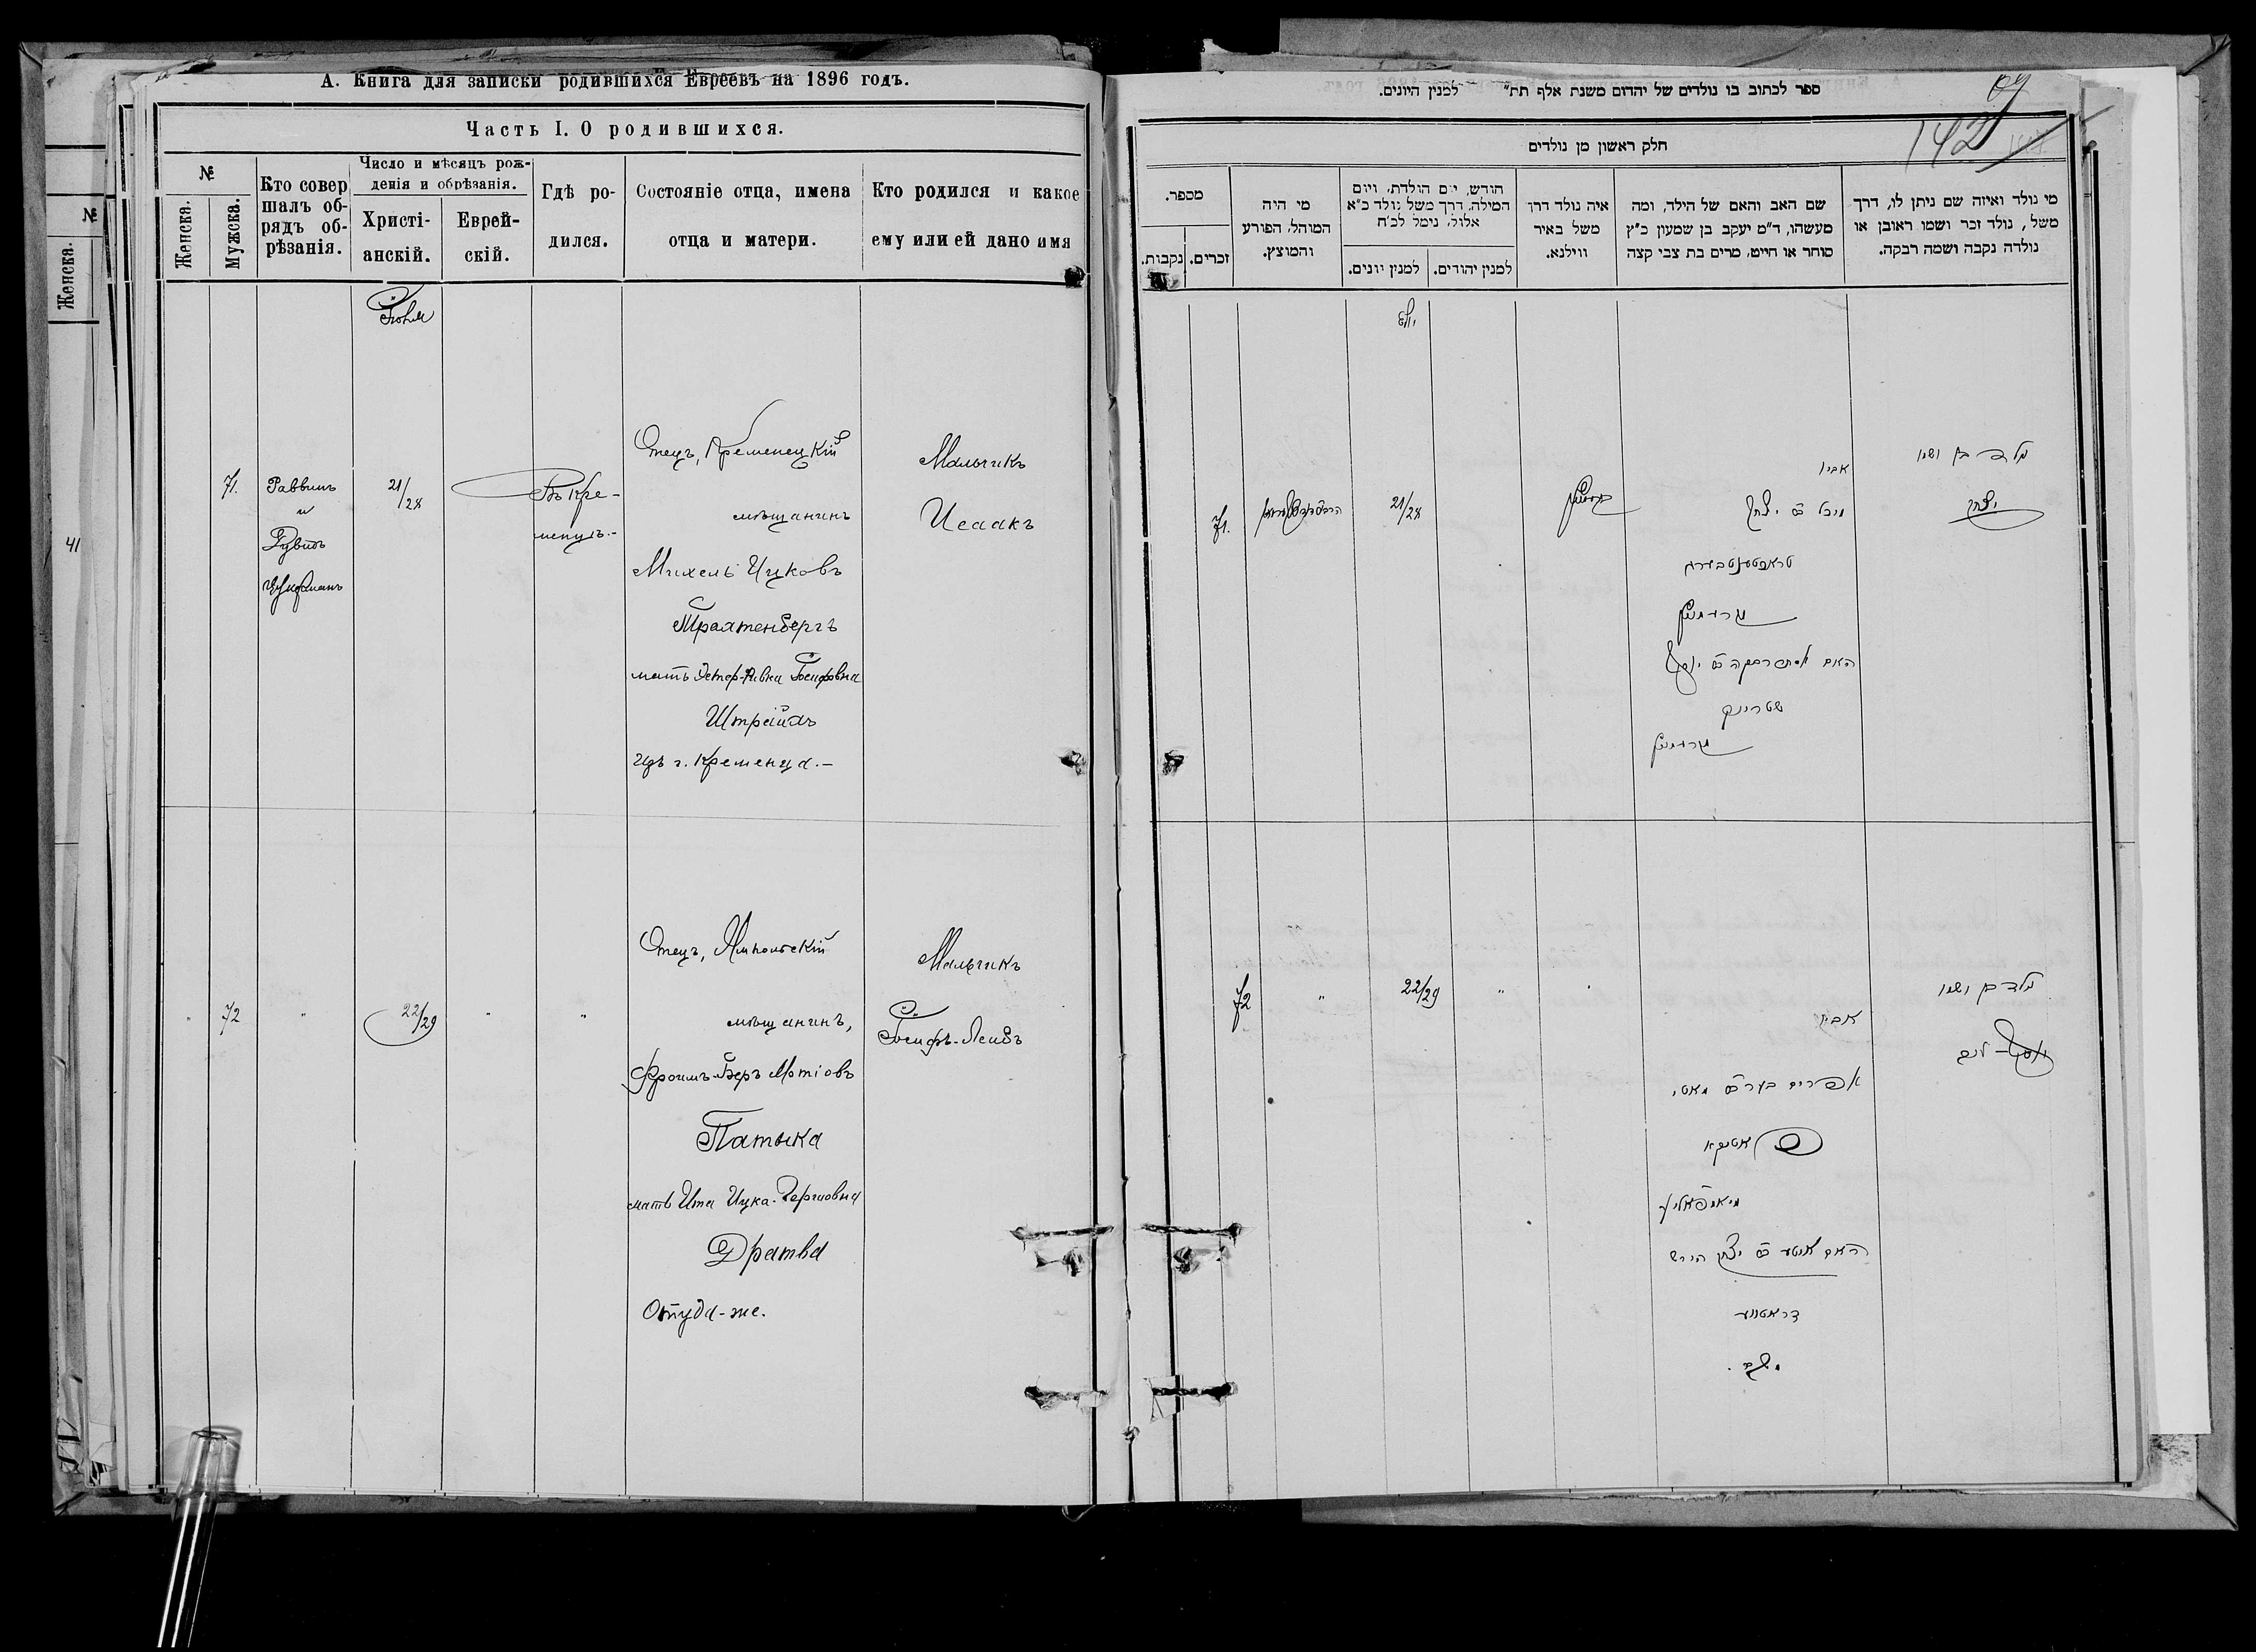 А. Книга для записки родившихся Евреевъ на 1896 годъ.
Часть I. О родившихся.
№
Женска.
Мужска.
Кто совер
шалъ об-
рядъ об-
рѣзанія.
Число и мѣсяцъ рож-
денія и обрѣзанія.
Христі-
анскій.
Еврей-
скій.
Гдѣ ро-
дился.
Состояніе отца, имена
отца и матери.
Кто родился и какое
ему или ей дано имя
Іюль
71.
Раввинъ
и
Рувинъ
Цукерманъ
21/28
Въ Кре-
менцѣ.-
Отецъ, Кременецкій
мѣщанинъ
Михель Ицковъ
Трахтенбергъ
мать Эстер-Ривка Іосифовна
Штрейдъ
изъ г. Кременца.-
Мальчикъ
Исаакъ
72
"
22/29
"
"
Отецъ, Ямпольскій
мѣщанинъ,
Фроимъ-Беръ Мотіовъ
Патыка
мать Ита Ицка-Гершовна
Дратва
Оттуда-же.
Мальчикъ
Іосифъ-Лейбъ
№
Женска.
41
ספר לכתוב בו נולדים של יהדום משנת אלף תת" למנין היונים.
142
חלק ראשון מן נולדים
מספר.
נקבות.
זכרים.
מי היה
המוהל, הפורע
והמוצץ.
חודש, יום הולדת, ויום
המילה, דרך משל נולד כ"א
אלול, נימל לכ"ח
למנין יונים.
למנין יהודים.
איה נולד דרך
משל באיר
ווילנא.
שם האב והאם של הילד, ומה
מעשהו, ד"מ יעקב בן שמעון כ"ץ
סוחר או חייט, מרים בת צבי קצה
מי נולד ואיזה שם ניתן לו, דרך
משל, נולד זכר ושמו ראובן או
נולדה נקבה ושמה רבקה.
יולי
71.
21/28
אביו
מיכל ב"ר יצחק
טראכטענבערג
האם אסתר רבקה ב"ר יוסף
נולד בן ושמו
יצחק
72
"
22/29
"
אביו
אפרים בער ב"ר מאטי
פאטיקא
האם איטע ב"ר יצחק הירש
דראטווע
נולד בן ושמו
יוסף-ליב